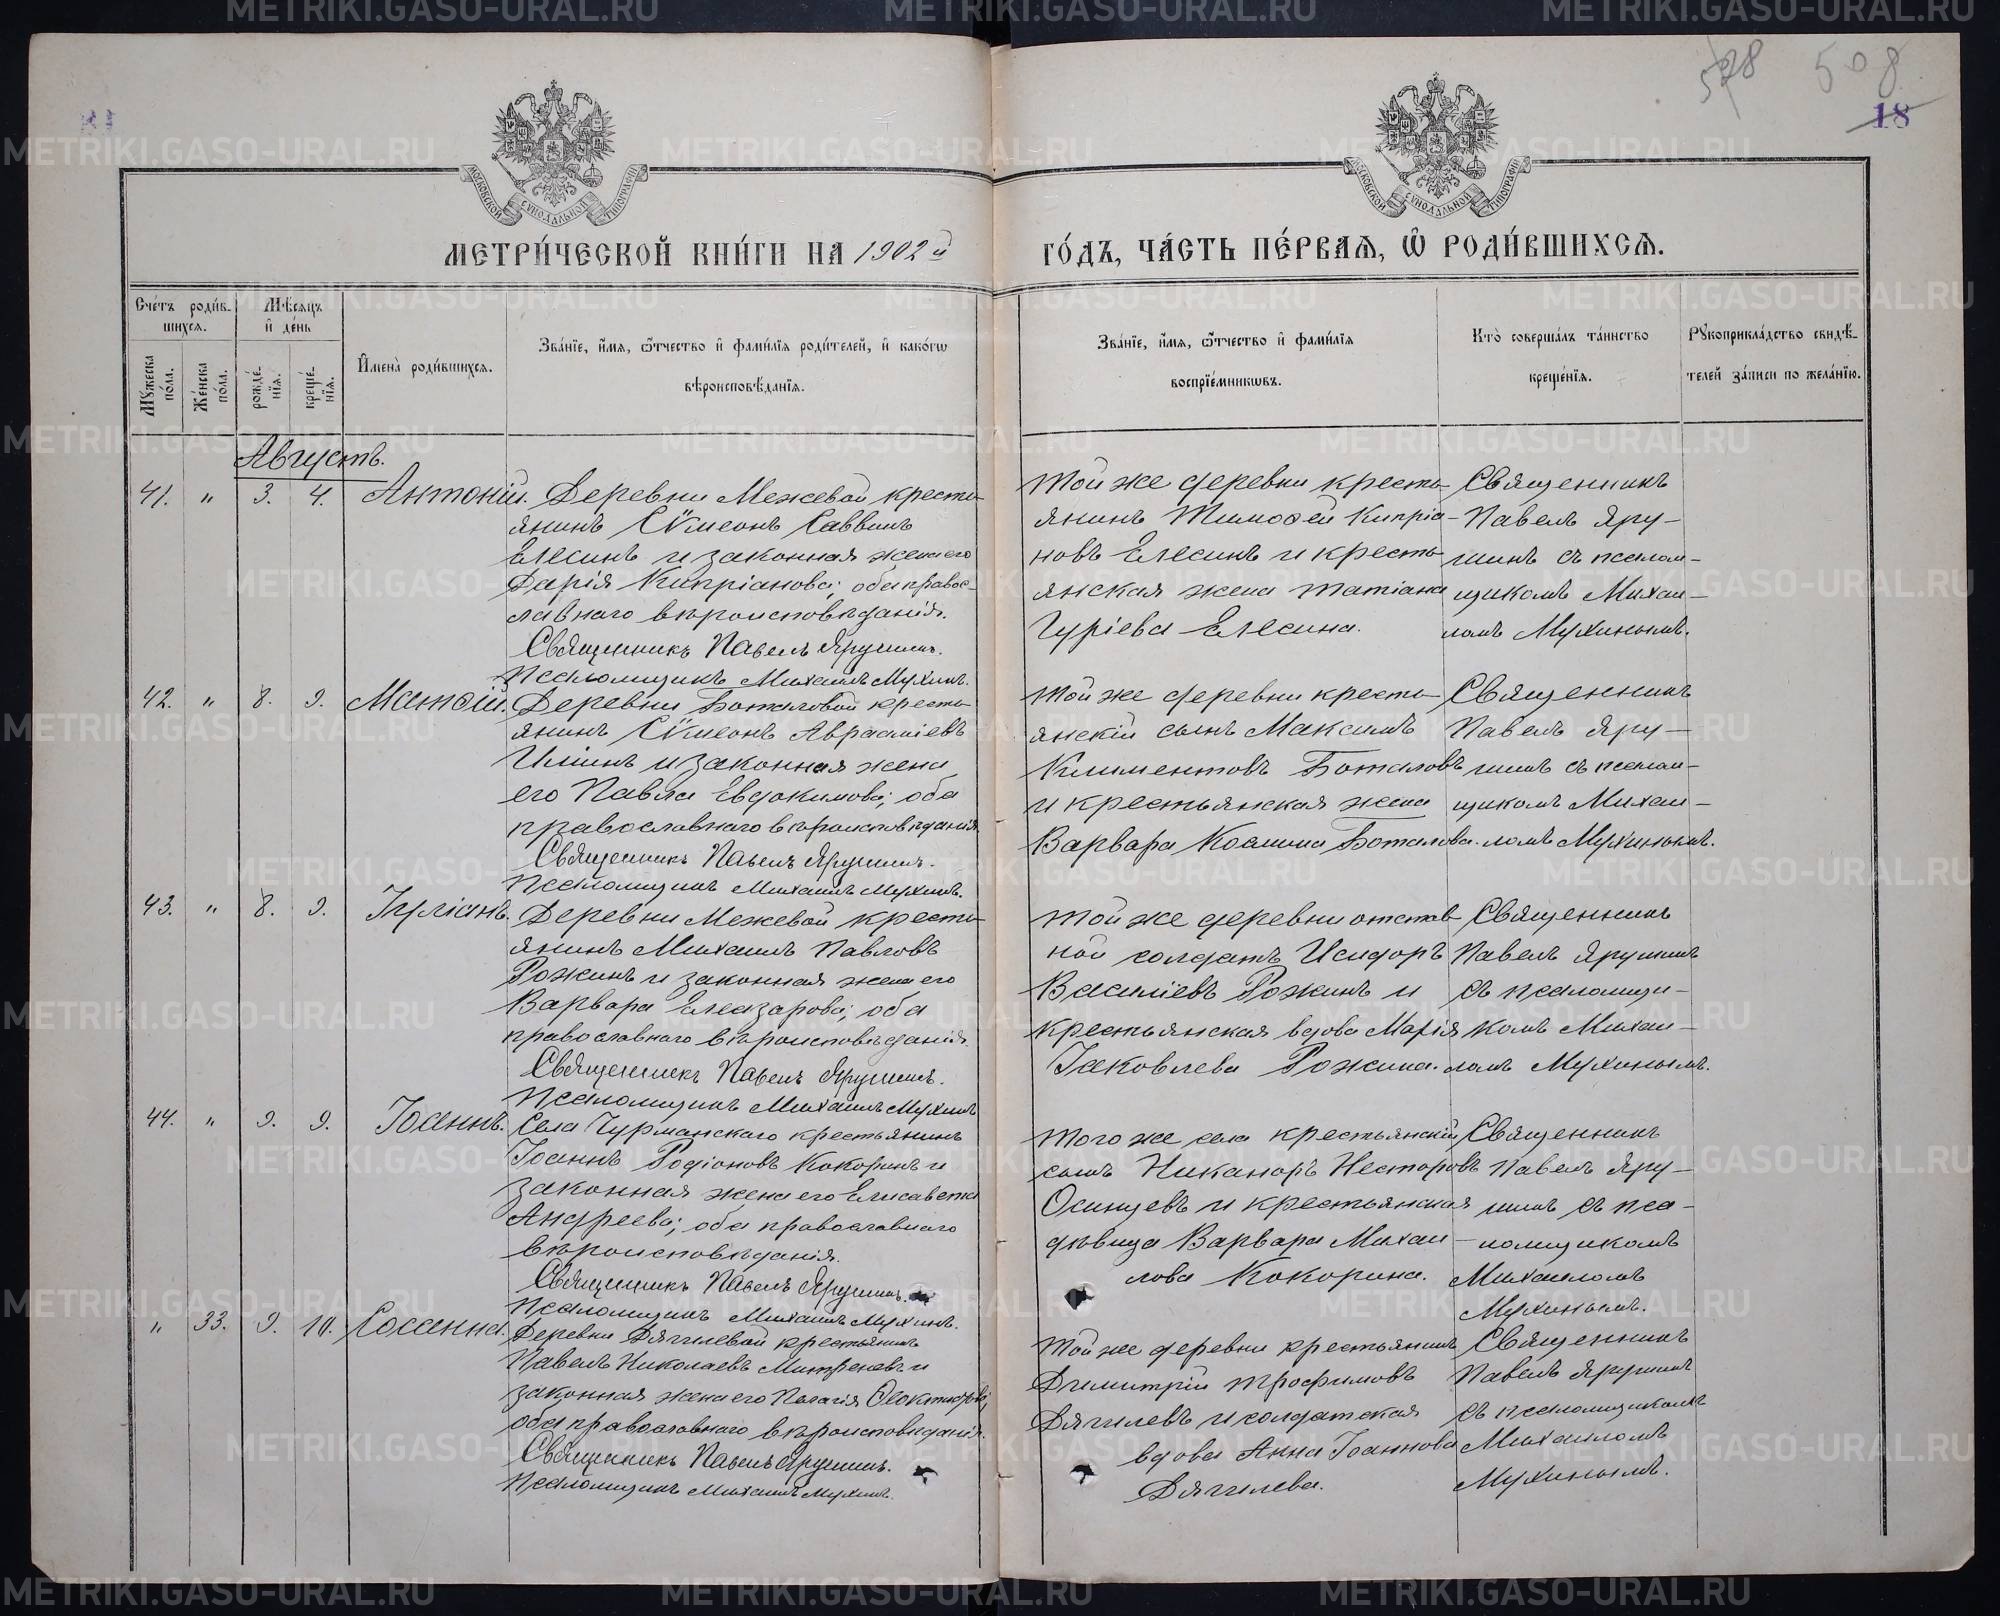 528 508
18
МОСКОВСКОЙ СУНОДАЛЬНОЙ ТИПОГРАФІИ
МОСКОВСКОЙ СУНОДАЛЬНОЙ ТИПОГРАФІИ
МЕТРИ́ЧЕСКОЙ КНИ́ГИ НА 1902й
ГО́ДЪ, ЧА́СТЬ ПЕ́РВАЯ, Ѡ РОДИ́ВШИХСЯ.
Сче́тъ роди́в-
шихся.
Мꙋжеска по́ла.
Же́нска по́ла.
Мѣ́сяцъ
и҆ де́нь
рожде́нїя.
креще́нїя.
И҆мена̀ роди́вшихся.
Зва́нїе, и҆́мя, ѻ҆́тчество и҆ фами́лїя роди́телей, и҆ како́гѡ
вѣроисповѣ́данїя.
Зва́нїе, и҆́мя, ѻ҆́тчество и҆ фами́лїя
воспрїе́мникѡвъ.
Кто̀ соверша́лъ та́инство
креще́нїя.
Рꙋкоприкла́дство свидѣ́-
телей за́писи по жела́нїю.
Августъ.
41. " 3. 4. Антоній.
Деревни Межевой кресть-
янинъ Сѵмеонъ Саввинъ
Елесинъ и законная жена его
Дарія Кипріанова; оба правос-
лавнаго вѣроисповѣданія.
Священникъ Павелъ Ярушинъ.
Псаломщикъ Михаилъ Мухинъ.
Той же деревни кресть-
янинъ Тимоѳей Кипріа-
новъ Елесинъ и кресть-
янская жена Татіана
Гуріева Елесина.
Священникъ
Павелъ Яру-
шинъ съ псалом-
щикомъ Михаи-
ломъ Мухинымъ.
42. " 8. 9. Матѳій.
Деревни Боталовой кресть-
янинъ Сѵмеонъ Авраміевъ
Ильинъ и законная жена
его Павла Евдокимова; оба
православнаго вѣроисповѣданія.
Священникъ Павелъ Ярушинъ.
Псаломщикъ Михаилъ Мухинъ.
Той же деревни кресть-
янскій сынъ Максимъ
Климентовъ Боталовъ
и крестьянская жена
Варвара Космина Боталова.
Священникъ
Павелъ Яру-
шинъ съ псалом-
щикомъ Михаи-
ломъ Мухинымъ.
43. " 8. 9. Іуліанъ.
Деревни Межевой кресть-
янинъ Михаилъ Павловъ
Рожинъ и законная жена его
Варвара Елеазарова; оба
православнаго вѣроисповѣданія.
Священникъ Павелъ Ярушинъ.
Псаломщикъ Михаилъ Мухинъ
Той же деревни отстав-
ной солдатъ Исидоръ
Василіевъ Рожинъ и
крестьянская вдова Марія
Іаковлева Рожина.
Священникъ
Павелъ Ярушинъ
съ псаломщи-
комъ Михаи-
ломъ Мухинымъ.
44. " 9. 9. Іоаннъ.
Села Чурманскаго крестьянинъ
Іоаннъ Родіоновъ Кокоринъ и
законная жена его Елисавета
Андреева; оба православнаго
вѣроисповѣданія.
Священникъ Павелъ Ярушинъ.
Псаломщикъ Михаилъ Мухинъ.
Того же села крестьянскій
сынъ Никаноръ Несторовъ
Осинцевъ и крестьянская
дѣвица Варвара Михаи-
лова Кокорина.
Священникъ
Павелъ Яру-
шинъ съ пса-
ломщикомъ
Михаиломъ
Мухинымъ.
" 33. 9. 10. Сосанна.
Деревни Дягилевой крестьянинъ
Павелъ Николаевъ Митреневъ и
законная жена его Пелагія Ѳеоктистова;
оба православнаго вѣроисповѣданія.
Священникъ Павелъ Ярушинъ.
Псаломщикъ Михаилъ Мухинъ.
Той же деревни крестьянинъ
Димитрій Трофимовъ
Дягилевъ и солдатская
вдова Анна Іоаннова
Дягилева.
Священникъ
Павелъ Ярушинъ
съ псаломщикомъ
Михаиломъ
Мухинымъ.
METRIKI.GASO-URAL.RU